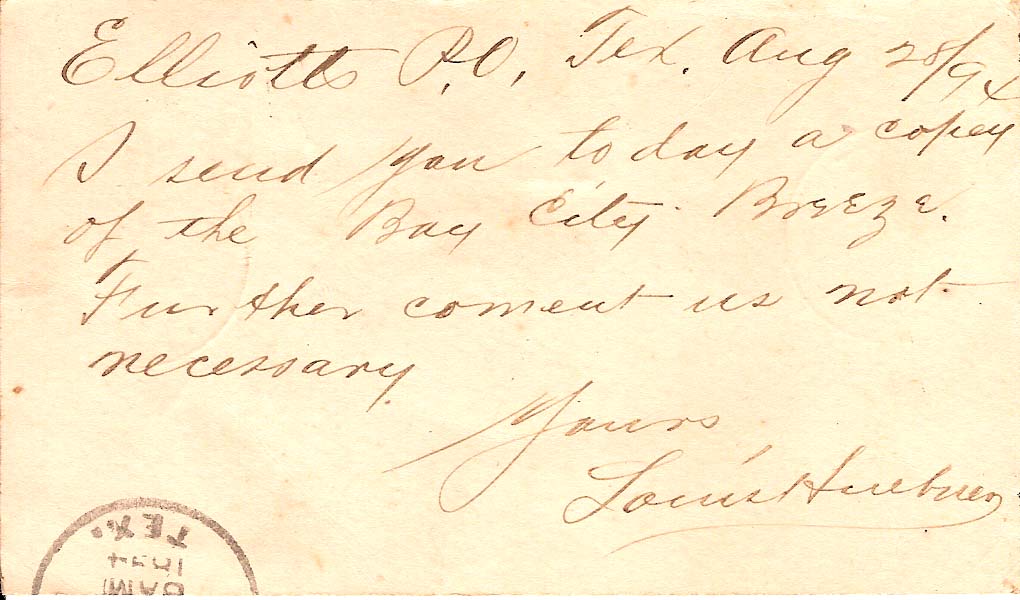 Elliotts P.O., Tex. Aug 28/94
I send you to day a copey
of the Bay City Breeze.
Further coment us not
necessary.
Yours
Louis Huebner
TEX.
AM